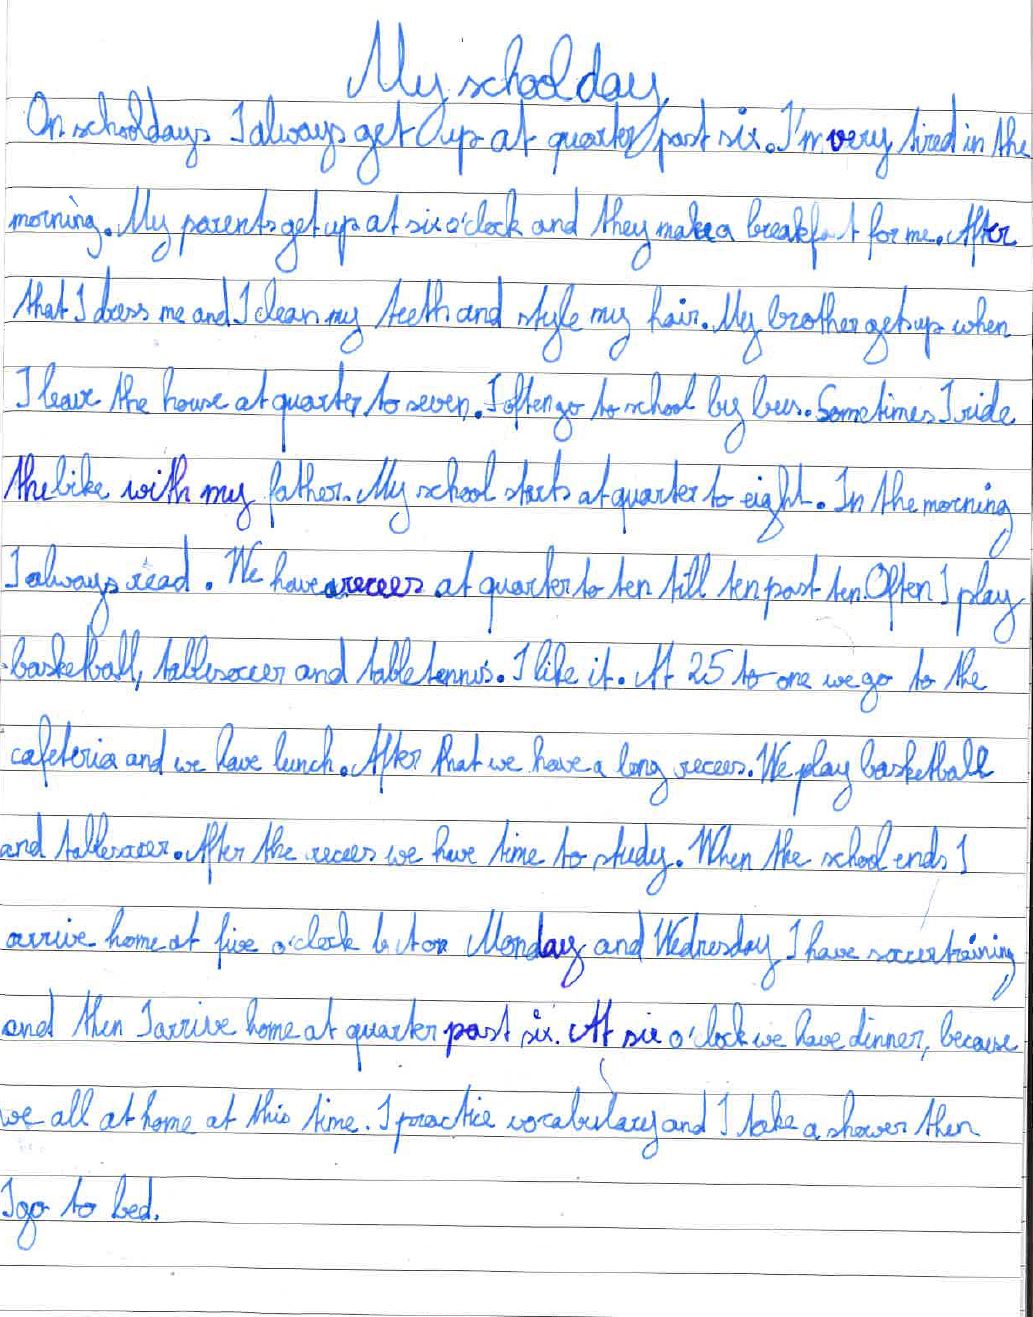 My school day
On schooldays I always get up at quarter past six. I'm very tired in the
morning. My parents get up at six o'clock and they make a breakfast for me. After
that I dress me and I clean my teeth and style my hair. My brother gets up when
I leave the house at quarter to seven. I often go to school by bus. Sometimes I ride
the bike with my father. My school starts at quarter to eight. In the morning
I always read. We have a recees at quarter to ten till ten past ten. Often I play
basketball, tablesoccer and table tennis. I like it. At 25 to one we go to the
cafeteria and we have lunch. After that we have a long recees. We play basketball
and tablesoccer. After the recees we have time to study. When the school ends I
arrive home at five o'clock but on Monday and Wednesday I have soccertraining
and then I arrive home at quarter past six. At six o'clock we have dinner, because
we all at home at this time. I practice vocabulary and I take a shower then
I go to bed.